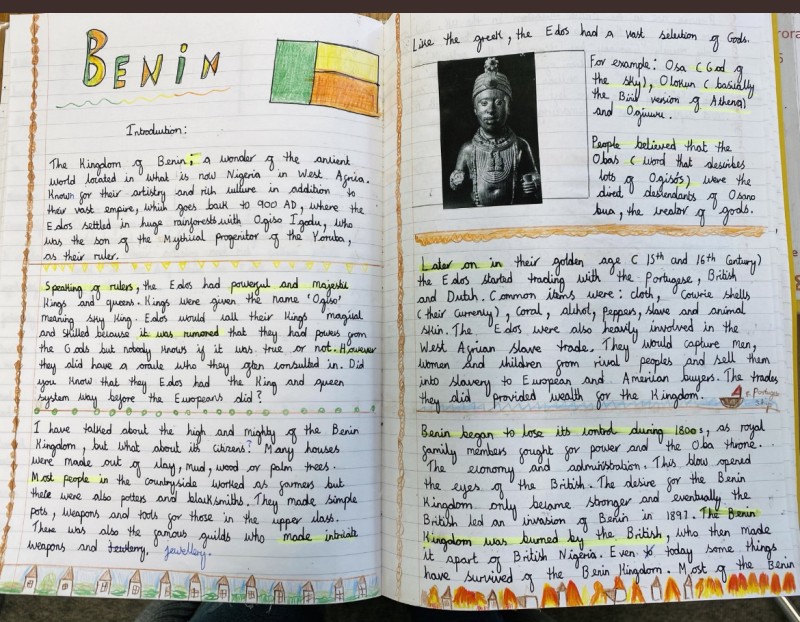 BENIN
Introduction:
The Kingdom of Benin; a wonder of the ancient
world located in what is now Nigeria in West Africa.
Known for their artistry and rich culture in addition to
their vast empire, which goes back to 900 AD, where the
Edos settled in huge rainforests with Ogiso Igodu, who
was the son of the Mythical progenitor of the Yoruba,
as their ruler.
Speaking of rulers, the Edos had powerful and majestic
Kings and queens. Kings were given the name 'Ogiso'
meaning sky King. Edos would call their Kings magical
and skilled because it was rumored that they had powers from
the Gods but nobody knows if it was true or not. However
they did have a oracle who they often consulted in. Did
you know that they Edos had the King and queen
system way before the Europeans did?
I have talked about the high and mighty of the Benin
Kingdom, but what about its citizens? Many houses
were made out of clay, mud, wood or palm trees.
Most people in the countryside worked as farmers but
there were also potters and blacksmiths. They made simple
pots, weapons and tools for those in the upper class.
There was also the famous guilds who made intricate
weapons and jewellery.
Like the greek, the Edos had a vast selection of Gods.
For example: Osa (God of
the sky), Olokun (basically
the Bini version of Athena)
and Ogiuwu.
People believed that the
Obas (word that describes
lots of Ogisos) were the
direct descendants of Osano
bua, the creator of gods.
Later on in their golden age (15th and 16th Century)
the Edos started trading with the Portugese, British
and Dutch. Common items were: cloth, Cowrie shells
(their currency), coral, alchol, peppers, slave and animal
skin. The Edos were also heavily involved in the
West African slave trade. They would capture men,
women and children from rival peoples and sell them
into slavery to European and American buyers. The trades
they did provided wealth for the Kingdom.
Benin began to lose its control during 1800s, as royal
family members fought for power and the Oba throne.
The economy and administration. This blow opened
the eyes of the British. The desire for the Benin
Kingdom only became stronger and eventually the
British led an invasion of Benin in 1897. The Benin
Kingdom was burned by the British, who then made
it apart of British Nigeria. Even today some things
have survived of the Benin Kingdom. Most of the Benin